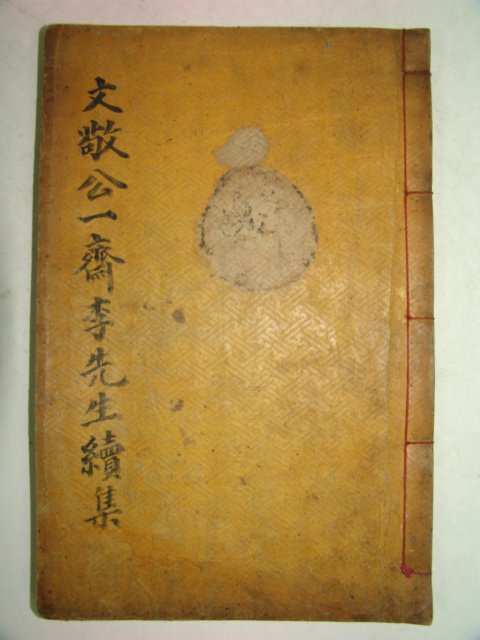 文敬公一齋李先生續集